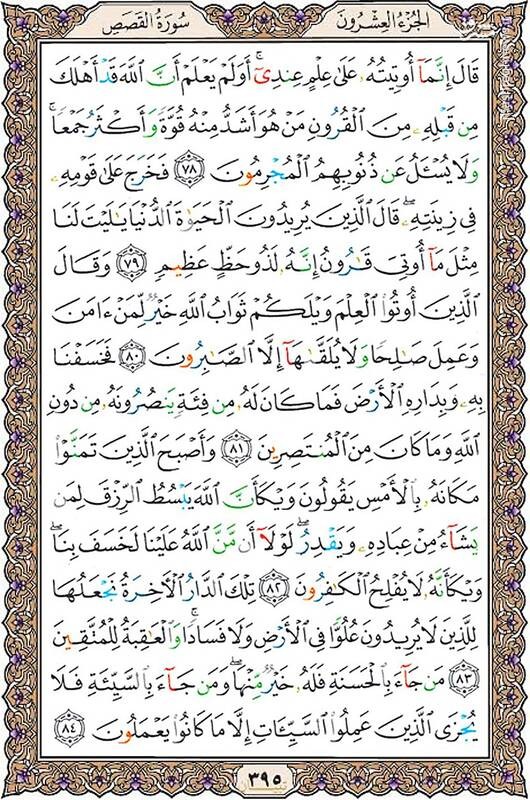 سُورَةُ القَصَصِ الجُزءُ العِشْرُونَ
قَالَ إِنَّمَآ أُوتِيتُهُۥ عَلَىٰ عِلْمٍ عِندِىٓ ۚ أَوَلَمْ يَعْلَمْ أَنَّ ٱللَّهَ قَدْ أَهْلَكَ
مِن قَبْلِهِۦ مِنَ ٱلْقُرُونِ مَنْ هُوَ أَشَدُّ مِنْهُ قُوَّةً وَأَكْثَرُ جَمْعًا ۚ
وَلَا يُسْـَٔلُ عَن ذُنُوبِهِمُ ٱلْمُجْرِمُونَ ٧٨ فَخَرَجَ عَلَىٰ قَوْمِهِۦ
فِى زِينَتِهِۦ ۖ قَالَ ٱلَّذِينَ يُرِيدُونَ ٱلْحَيَوٰةَ ٱلدُّنْيَا يَـٰلَيْتَ لَنَا
مِثْلَ مَآ أُوتِىَ قَـٰرُونُ إِنَّهُۥ لَذُو حَظٍّ عَظِيمٍ ٧٩ وَقَالَ
ٱلَّذِينَ أُوتُوا۟ ٱلْعِلْمَ وَيْلَكُمْ ثَوَابُ ٱللَّهِ خَيْرٌ لِّمَنْ ءَامَنَ
وَعَمِلَ صَـٰلِحًا وَلَا يُلَقَّىٰهَآ إِلَّا ٱلصَّـٰبِرُونَ ٨٠ فَخَسَفْنَا
بِهِۦ وَبِدَارِهِ ٱلْأَرْضَ فَمَا كَانَ لَهُۥ مِن فِئَةٍ يَنصُرُونَهُۥ مِن دُونِ
ٱللَّهِ وَمَا كَانَ مِنَ ٱلْمُنتَصِرِينَ ٨١ وَأَصْبَحَ ٱلَّذِينَ تَمَنَّوْا۟
مَكَانَهُۥ بِٱلْأَمْسِ يَقُولُونَ وَيْكَأَنَّ ٱللَّهَ يَبْسُطُ ٱلرِّزْقَ لِمَن
يَشَآءُ مِنْ عِبَادِهِۦ وَيَقْدِرُ ۖ لَوْلَآ أَن مَّنَّ ٱللَّهُ عَلَيْنَا لَخَسَفَ بِنَا ۖ
وَيْكَأَنَّهُۥ لَا يُفْلِحُ ٱلْكَـٰفِرُونَ ٨٢ تِلْكَ ٱلدَّارُ ٱلْـَٔاخِرَةُ نَجْعَلُهَا
لِلَّذِينَ لَا يُرِيدُونَ عُلُوًّا فِى ٱلْأَرْضِ وَلَا فَسَادًا ۚ وَٱلْعَـٰقِبَةُ لِلْمُتَّقِينَ
٨٣ مَن جَآءَ بِٱلْحَسَنَةِ فَلَهُۥ خَيْرٌ مِّنْهَا ۖ وَمَن جَآءَ بِٱلسَّيِّئَةِ فَلَا
يُجْزَى ٱلَّذِينَ عَمِلُوا۟ ٱلسَّيِّـَٔاتِ إِلَّا مَا كَانُوا۟ يَعْمَلُونَ ٨٤
٣٩٥